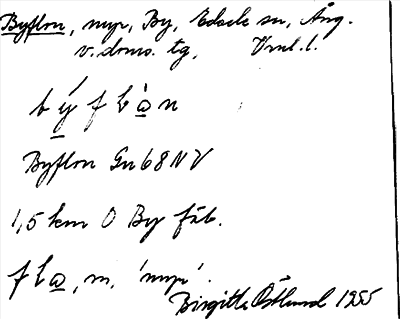 Byflon, myr, By, Edsele sn, Ång.
v. doms. tg, Vrnl. l.
b ý f l ò n
Byflon Gn 68 NV
1,5 km O By fäb.
f l o, m. 'myr'.
Birgitta Östlund 1955